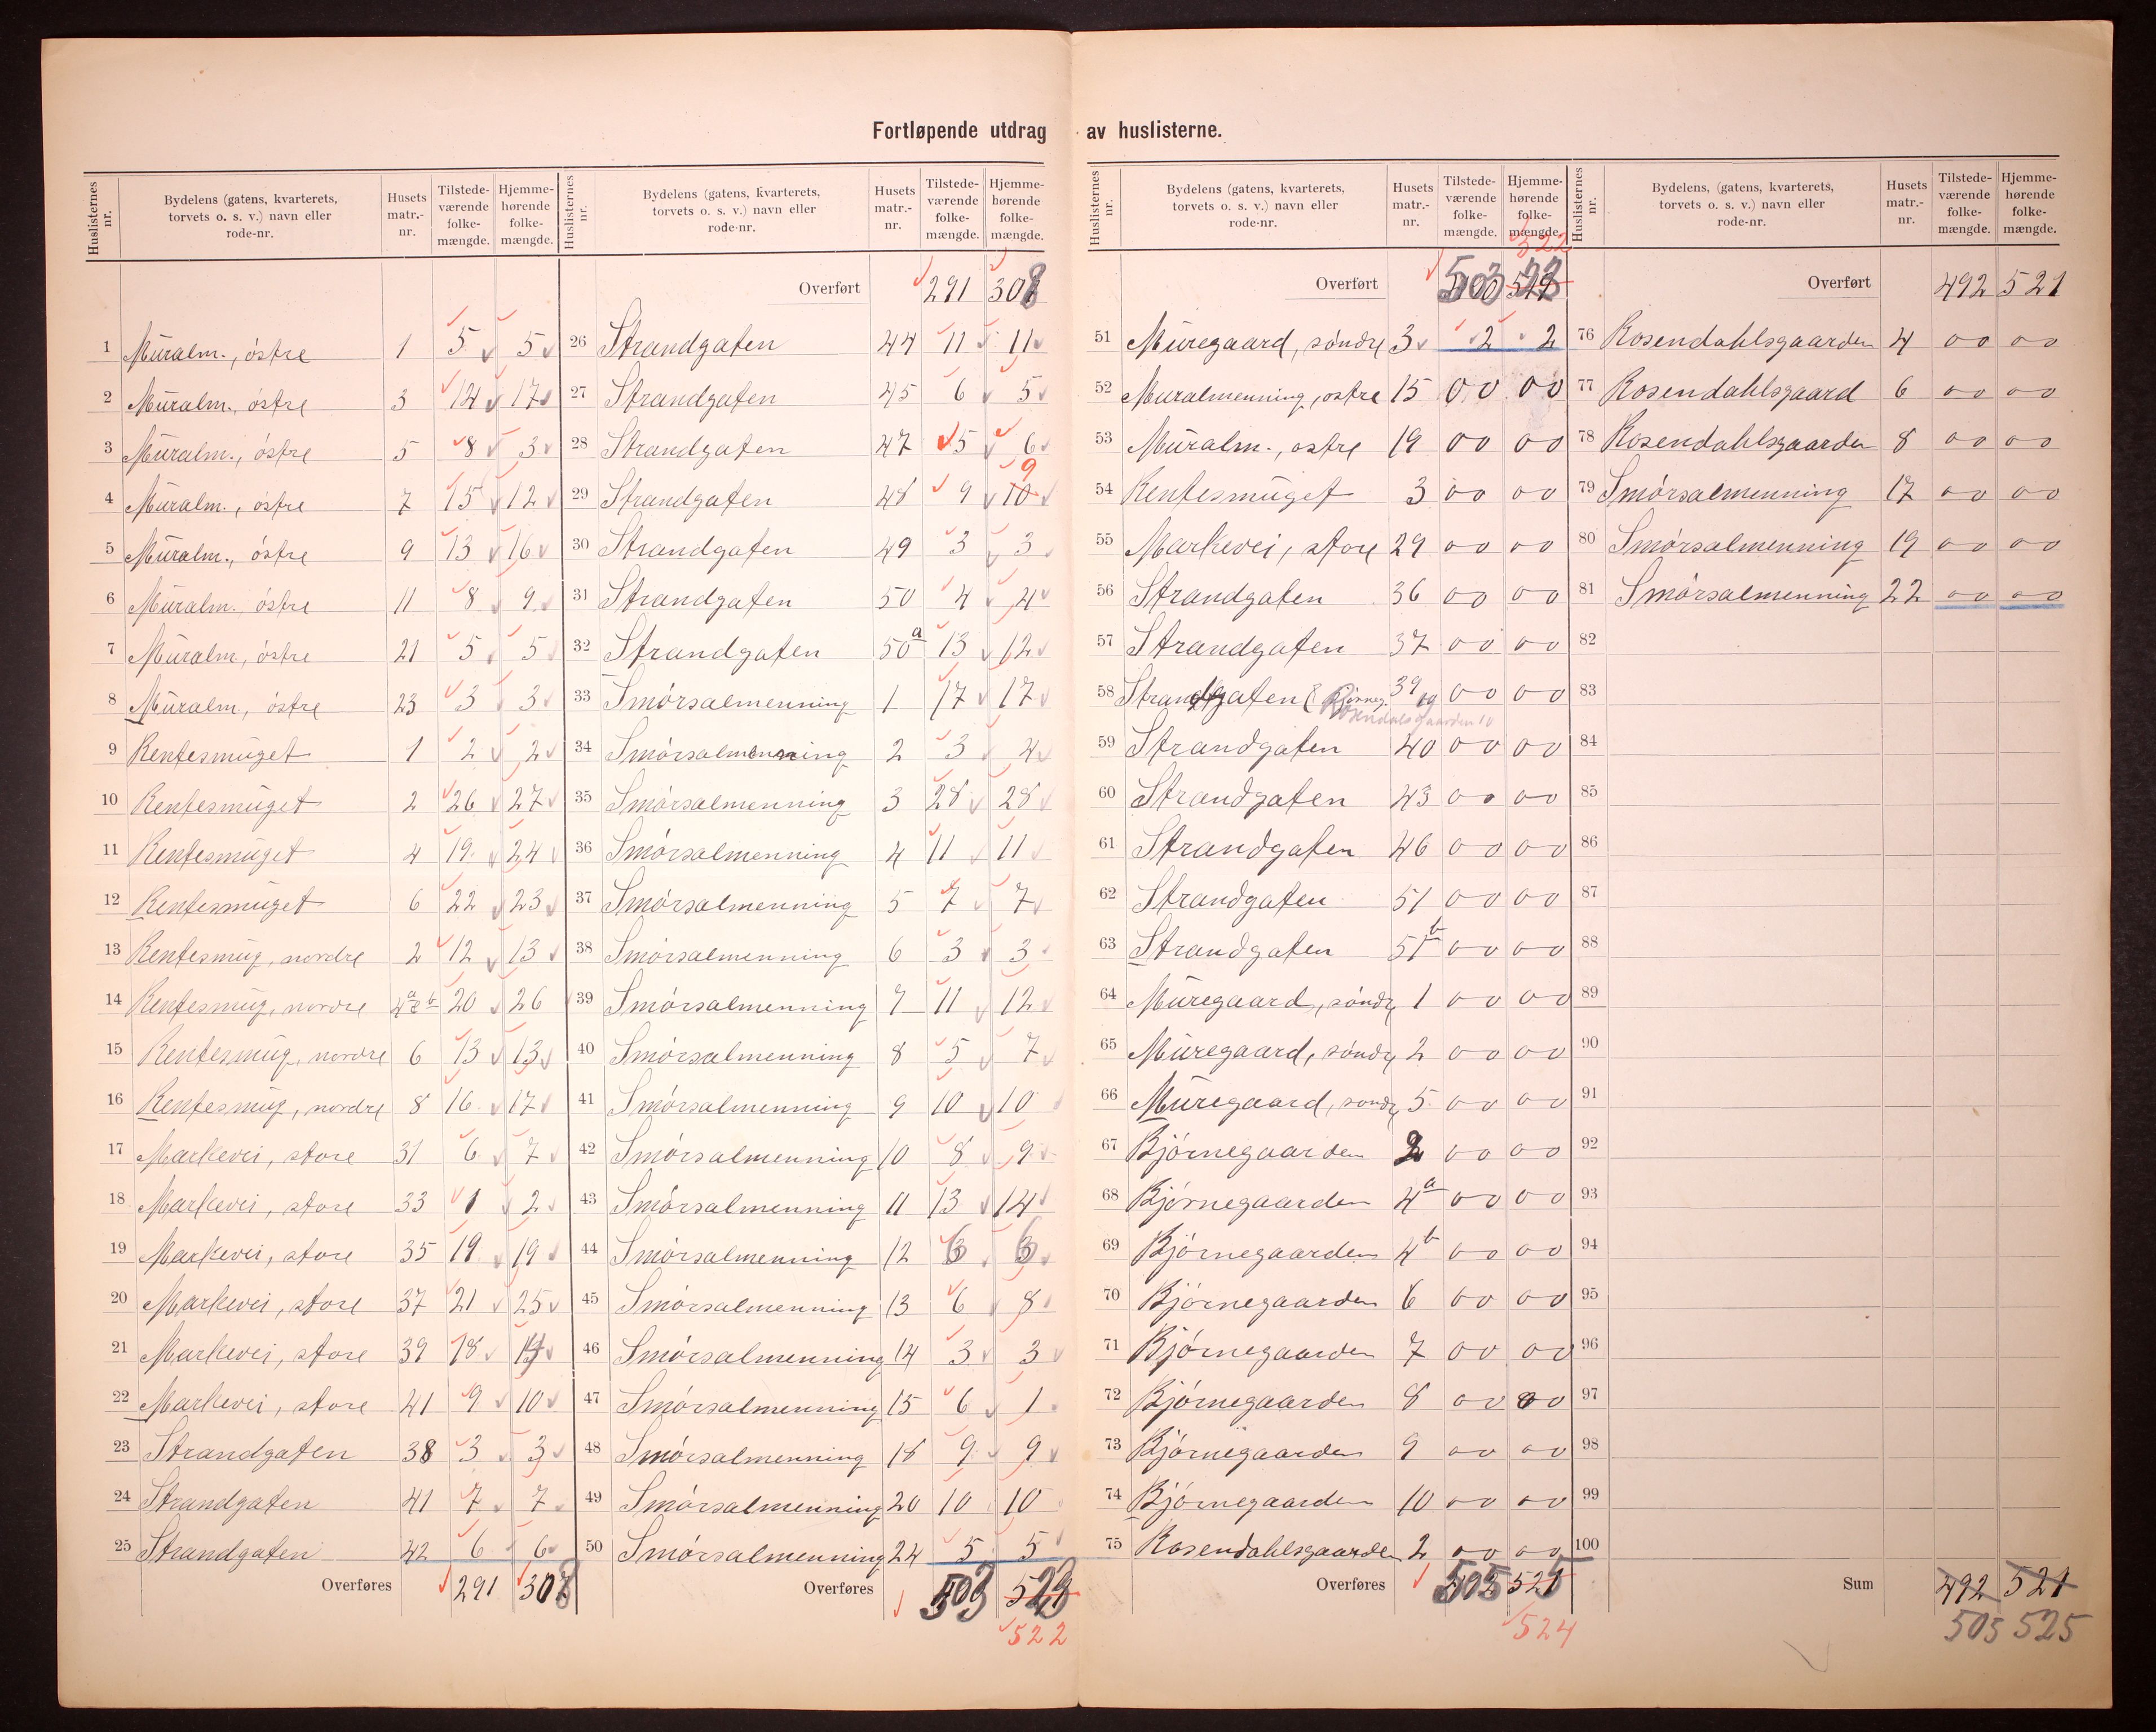 Fortløpende utdrag av huslisterne.
Huslisternes nr. Bydelens (gatens, kvarterets, torvets o. s. v.) navn eller rode-nr. Husets matr.-nr. Tilstede-værende folke-mængde. Hjemme-hørende folke-mængde.
1 Muralm., østre 1 5 5
2 Muralm., østre 3 14 17
3 Muralm., østre 5 8 3
4 Muralm., østre 7 15 12
5 Muralm., østre 9 13 16
6 Muralm., østre 11 8 9
7 Muralm, østre 21 5 5
8 Muralm, østre 23 3 3
9 Rentesmuget 1 2 2
10 Rentesmuget 2 26 27
11 Rentesmuget 4 19 24
12 Rentesmuget 6 22 23
13 Rentesmug, nordre 2 12 13
14 Rentesmug, nordre 4 a & b 20 26
15 Rentesmug, nordre 6 13 13
16 Rentesmug, nordre 8 16 17
17 Markevei, store 31 6 7
18 Markevei, store 33 1 2
19 Markevei, store 35 19 19
20 Markevei, store 37 21 25
21 Markevei, store 39 18
22 Markevei, store 41 9 10
23 Strandgaten 38 3 3
24 Strandgaten 41 7 7
25 Strandgaten 42 6 6
Overføres 291 308
Huslisternes nr. Bydelens (gatens, kvarterets, torvets o. s. v.) navn eller rode-nr. Husets matr.-nr. Tilstede-værende folke-mængde. Hjemme-hørende folke-mængde.
Overført 291 308
26 Strandgaten 44 11 11
27 Strandgaten 45 6 5
28 Strandgaten 47 5 6
29 Strandgaten 48 9 10 9
30 Strandgaten 49 3 3
31 Strandgaten 50 4 4
32 Strandgaten 50 a 13 12
33 Smørsalmenning 1 17 17
34 Smørsalmenning 2 3 4
35 Smørsalmenning 3 28 28
36 Smørsalmenning 4 11 11
37 Smørsalmenning 5 7 7
38 Smørsalmenning 6 3 3
39 Smørsalmenning 7 11 12
40 Smørsalmenning 8 5 7
41 Smørsalmenning 9 10 10
42 Smørsalmenning 10 8 9
43 Smørsalmenning 11 13 14
44 Smørsalmenning 12
45 Smørsalmenning 13 6 8
46 Smørsalmenning 14 3 3
47 Smørsalmenning 15 6 1
48 Smørsalmenning 18 9 9
49 Smørsalmenning 20 10 10
50 Smørsalmenning 24 5 5
Overføres 503 523
522
Huslisternes nr. Bydelens (gatens, kvarterets, torvets o. s. v.) navn eller rode-nr. Husets matr.-nr. Tilstede-værende folke-mængde. Hjemme-hørende folke-mængde.
522
Overført 503 523
51 Muregaard, søndre 3 2 2
52 Muralmenning, østre 15 00 00
53 Muralm., østre 19 00 00
54 Rentesmuget 3 00 00
55 Markevei, store 29 00 00
56 Strandgaten 36 00 00
57 Strandgaten 37 00 00
58 Strandgaten 39 00 00
Rosendalsgaarden 10
59 Strandgaten 40 00 00
60 Strandgaten 43 00 00
61 Strandgaten 46 00 00
62 Strandgaten 51 00 00
63 Strandgaten 51 b 00 00
64 Muregaard, søndre 1 00 00
65 Muregaard, søndre 2 00 00
66 Muregaard, søndre 5 00 00
67 Bjørnegaarden 2 00 00
68 Bjørnegaarden 4 a 00 00
69 Bjørnegaarden 4 b 00 00
70 Bjørnegaarden 6 00 00
71 Bjørnegaarden 7 00 00
72 Bjørnegaarden 8 00 00
73 Bjørnegaarden 9 00 00
74 Bjørnegaarden 10 00 00
75 Rosendahlsgaarden 2 00 00
Overføres 505 525
524
Huslisternes nr. Bydelens (gatens, kvarterets, torvets o. s. v.) navn eller rode-nr. Husets matr.-nr. Tilstede-værende folke-mængde. Hjemme-hørende folke-mængde.
Overført 492 521
76 Rosendahlsgaarden 4 00 00
77 Rosendahlsgaard 6 00 00
78 Rosendahlsgaarden 8 00 00
79 Smørsalmenning 17 00 00
80 Smørsalmenning 19 00 00
81 Smørsalmenning 22 00 00
82
83
84
85
86
87
88
89
90
91
92
93
94
95
96
97
98
99
100
Sum 492 521
505 525